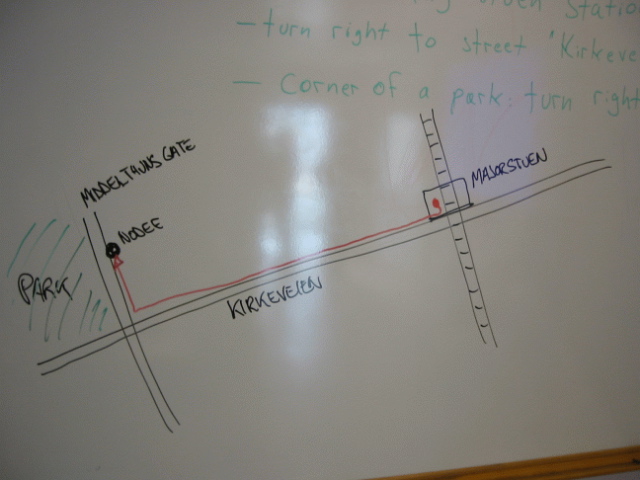 Station
—turn right to street "Kirkeve
— Corner of a park: turn right
MAJORSTUEN
MIDDELTHUNS GATE
NODEE
PARK
KIRKEVEIEN